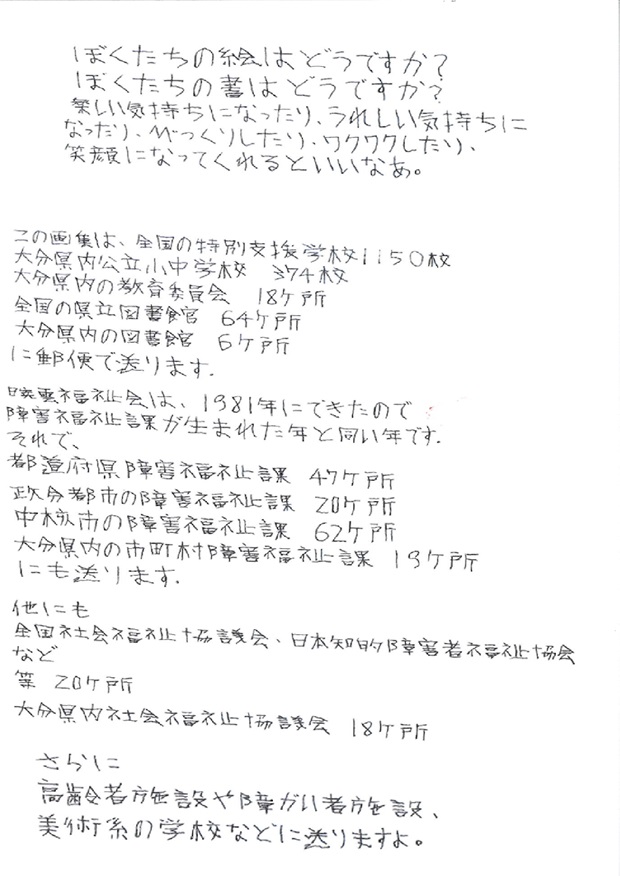 ぼくたちの絵はどうですか?
ぼくたちの書はどうですか?
楽しい気持ちになったり、うれしい気持ちに
なったり、びっくりしたり、ワクワクしたり、
笑顔になってくれるといいなあ。
この画集は、全国の特別支援学校1150枚
大分県内公立小中学校 374校
大分県内の教育委員会 18ケ所
全国の県立図書館 64ケ所
大分県内の図書館 6ケ所
に郵便で送ります.
暁雲福祉会は、1981年にできたので
障害福祉課が生まれた年と同い年です.
それで、
都道府県障害福祉課 47ケ所
政令都市の障害福祉課 20ケ所
中核市の障害福祉課 62ケ所
大分県内の市町村障害福祉課 19ケ所
にも送ります.
他にも
全国社会福祉協議会、日本知的障害者福祉協会
など
等 20ケ所
大分県内社会福祉協議会 18ケ所
さらに
高齢者施設や障がい者施設、
美術系の学校などに送りますよ。